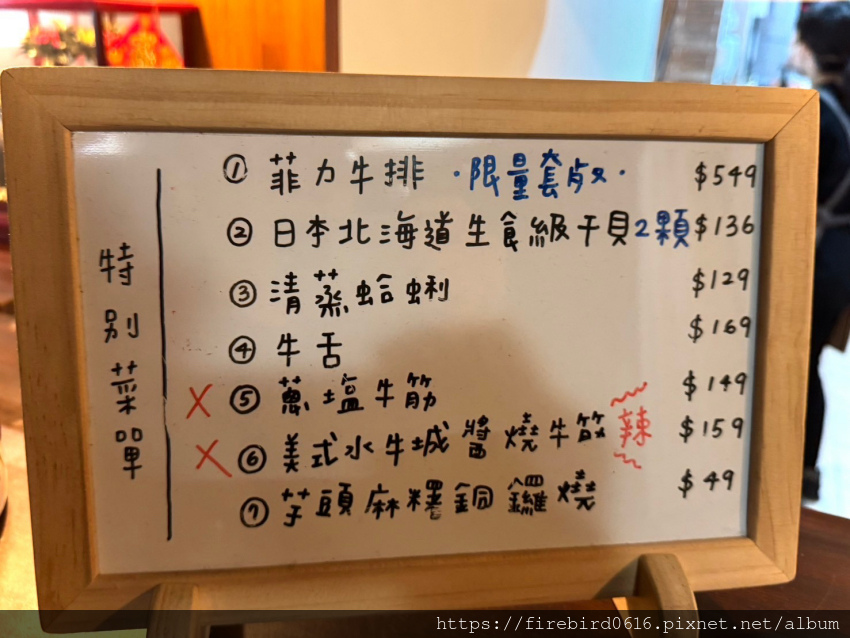 特別菜單
① 菲力牛排 ·限量套餐· $549
② 日本北海道生食級干貝2顆 $136
③ 清蒸蛤蜊 $129
④ 牛舌 $169
X ⑤ 蔥塩牛筋 $149
X ⑥ 美式水牛城醬燒牛筋 辣 $159
⑦ 芋頭麻糬銅鑼燒 $49
https://firebird0616.pixnet.net/album